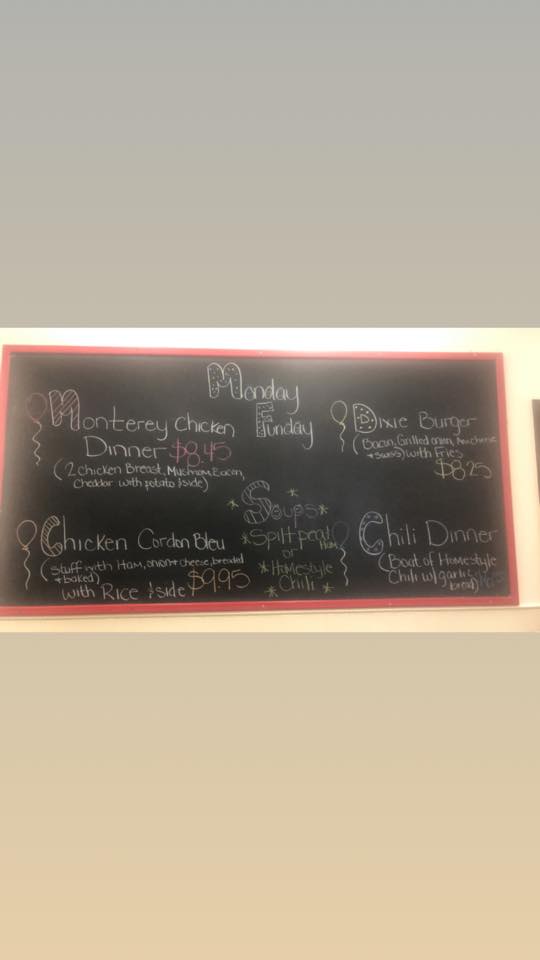 Monday
Funday
Monterey Chicken
Dinner $8.45
(2 Chicken Breast, Mushroom, Bacon,
Cheddar with potato & side)
Dixie Burger
(Bacon, Grilled onion, Am cheese
+ swiss) with Fries
$8.25
Chicken Cordon Bleu
(stuff with Ham, onion + cheese, breaded
+ baked)
with Rice & side $9.95
Soups
Split pea Ham
or
Homestyle
Chili
Chili Dinner
(Boat of Homestyle
Chili w/ garlic
bread)